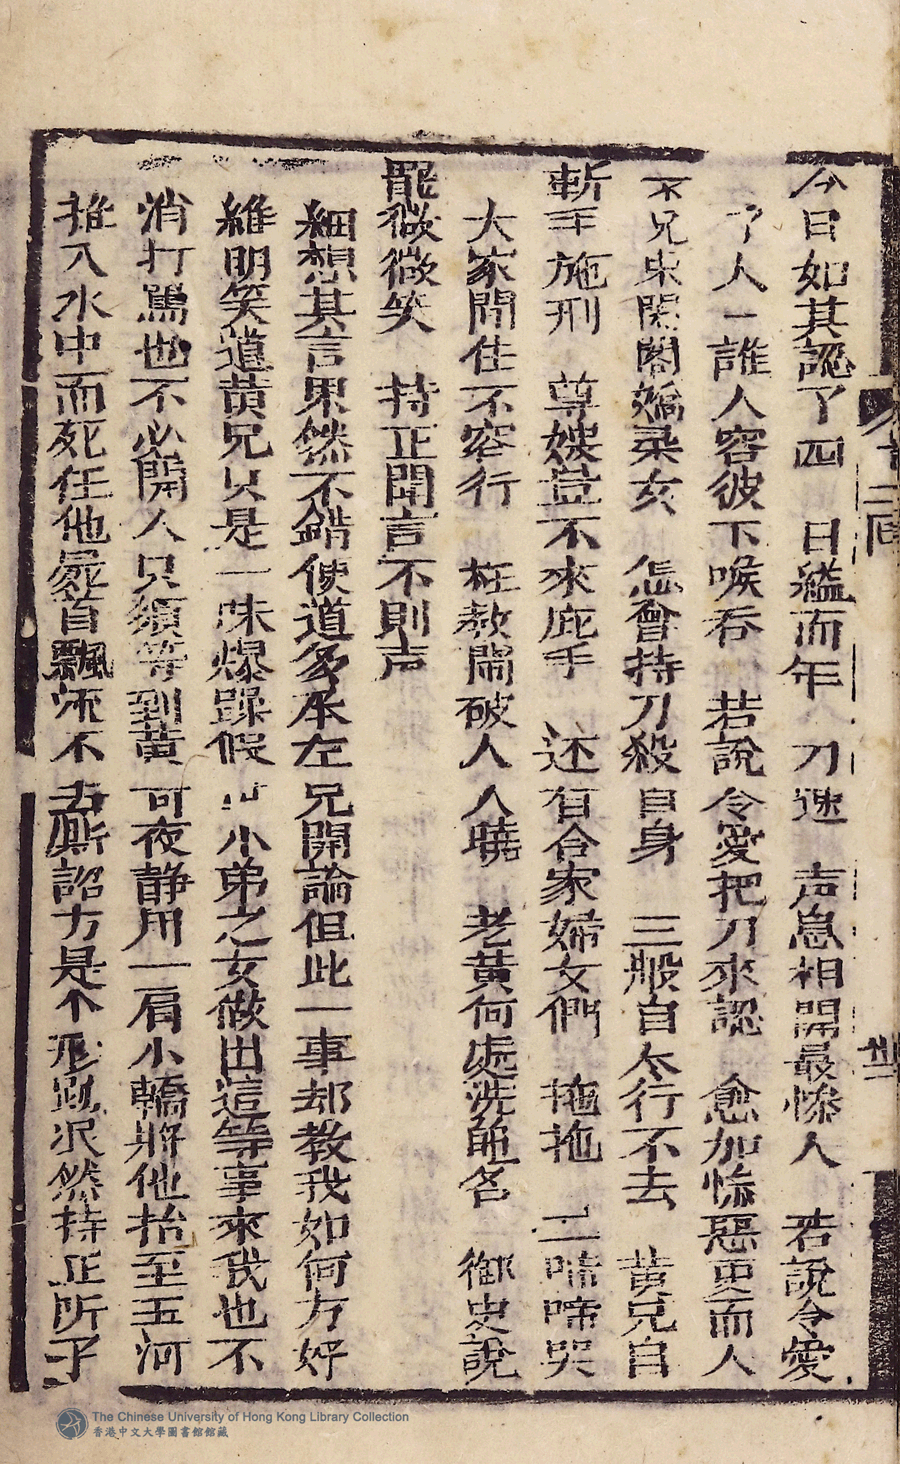 今日如其認了四 日縊而年 刀速 声息相開最慘人 若說令愛
了人一誰人容彼下喉吞 若說令愛把刀來認 愈加慘惡更而人
不兄未閨閣嬌柔女 怎會持刀殺自身 三般自太行不去 黄兄自
斬手施刑 尊嫂豈不來庇手 还有合家婦女們 拖拖 二啼啼哭
大家閙住不容行 枉教閙破人人曉 老黄何處洗能名 御史說
罷微微笑 持正聞言不則声
細想其言果然不錯便道多承左兄開論但此一事却教我如何方好
維明笑道黄兄只是一味爆躁假 小弟之女做出這等事來我也不
消打罵也不必開人只須等到黄 可夜静用一肩小轎將他抬至玉河
推入水中而死任他屍首飄流不去厮認方是个 泯然持正所了
二回
The Chinese University of Hong Kong Library Collection
香港中文大學圖書館館藏